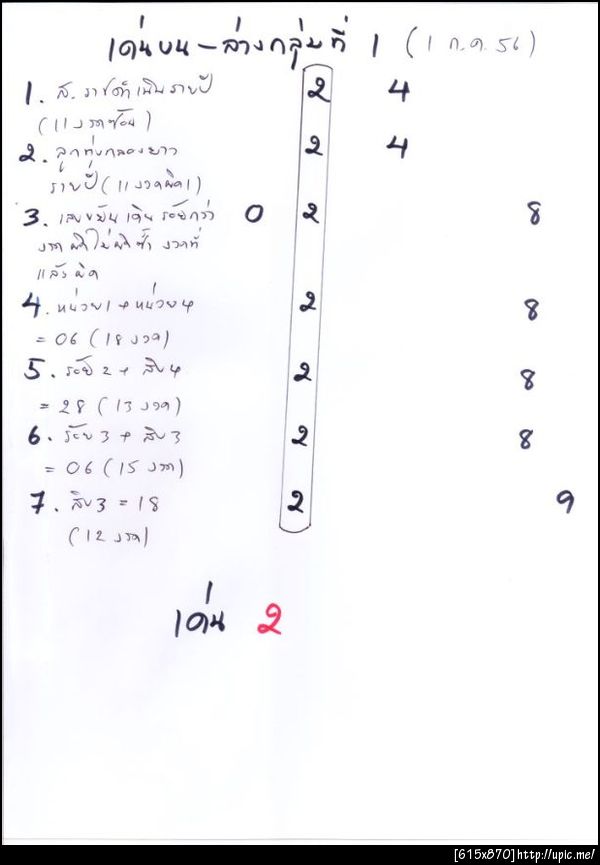 เด่นบน - ล่างกลุ่มที่ 1 (1 ก.ค. 56)
1. ส. ราชดำเนินรายปี 2 4
(11 งวดซ้อน)
2. ลูกทุ่งคลองยาว 2 4
รายปี (11 งวดผิด 1)
3. เลขขยันเดินร้อยกว่า 0 2 8
งวด ผิดไม่ผิดซ้ำ งวดที่
แล้วผิด
4. หน่วย1 + หน่วย4 2 8
= 06 (18 งวด)
5. ร้อย2 + สิบ4 2 8
= 28 (13 งวด)
6. ร้อย3 + สิบ3 2 8
= 06 (15 งวด)
7. สิบ3 = 18 2 9
(12 งวด)
เด่น 2
[615x870]http://upic.me/